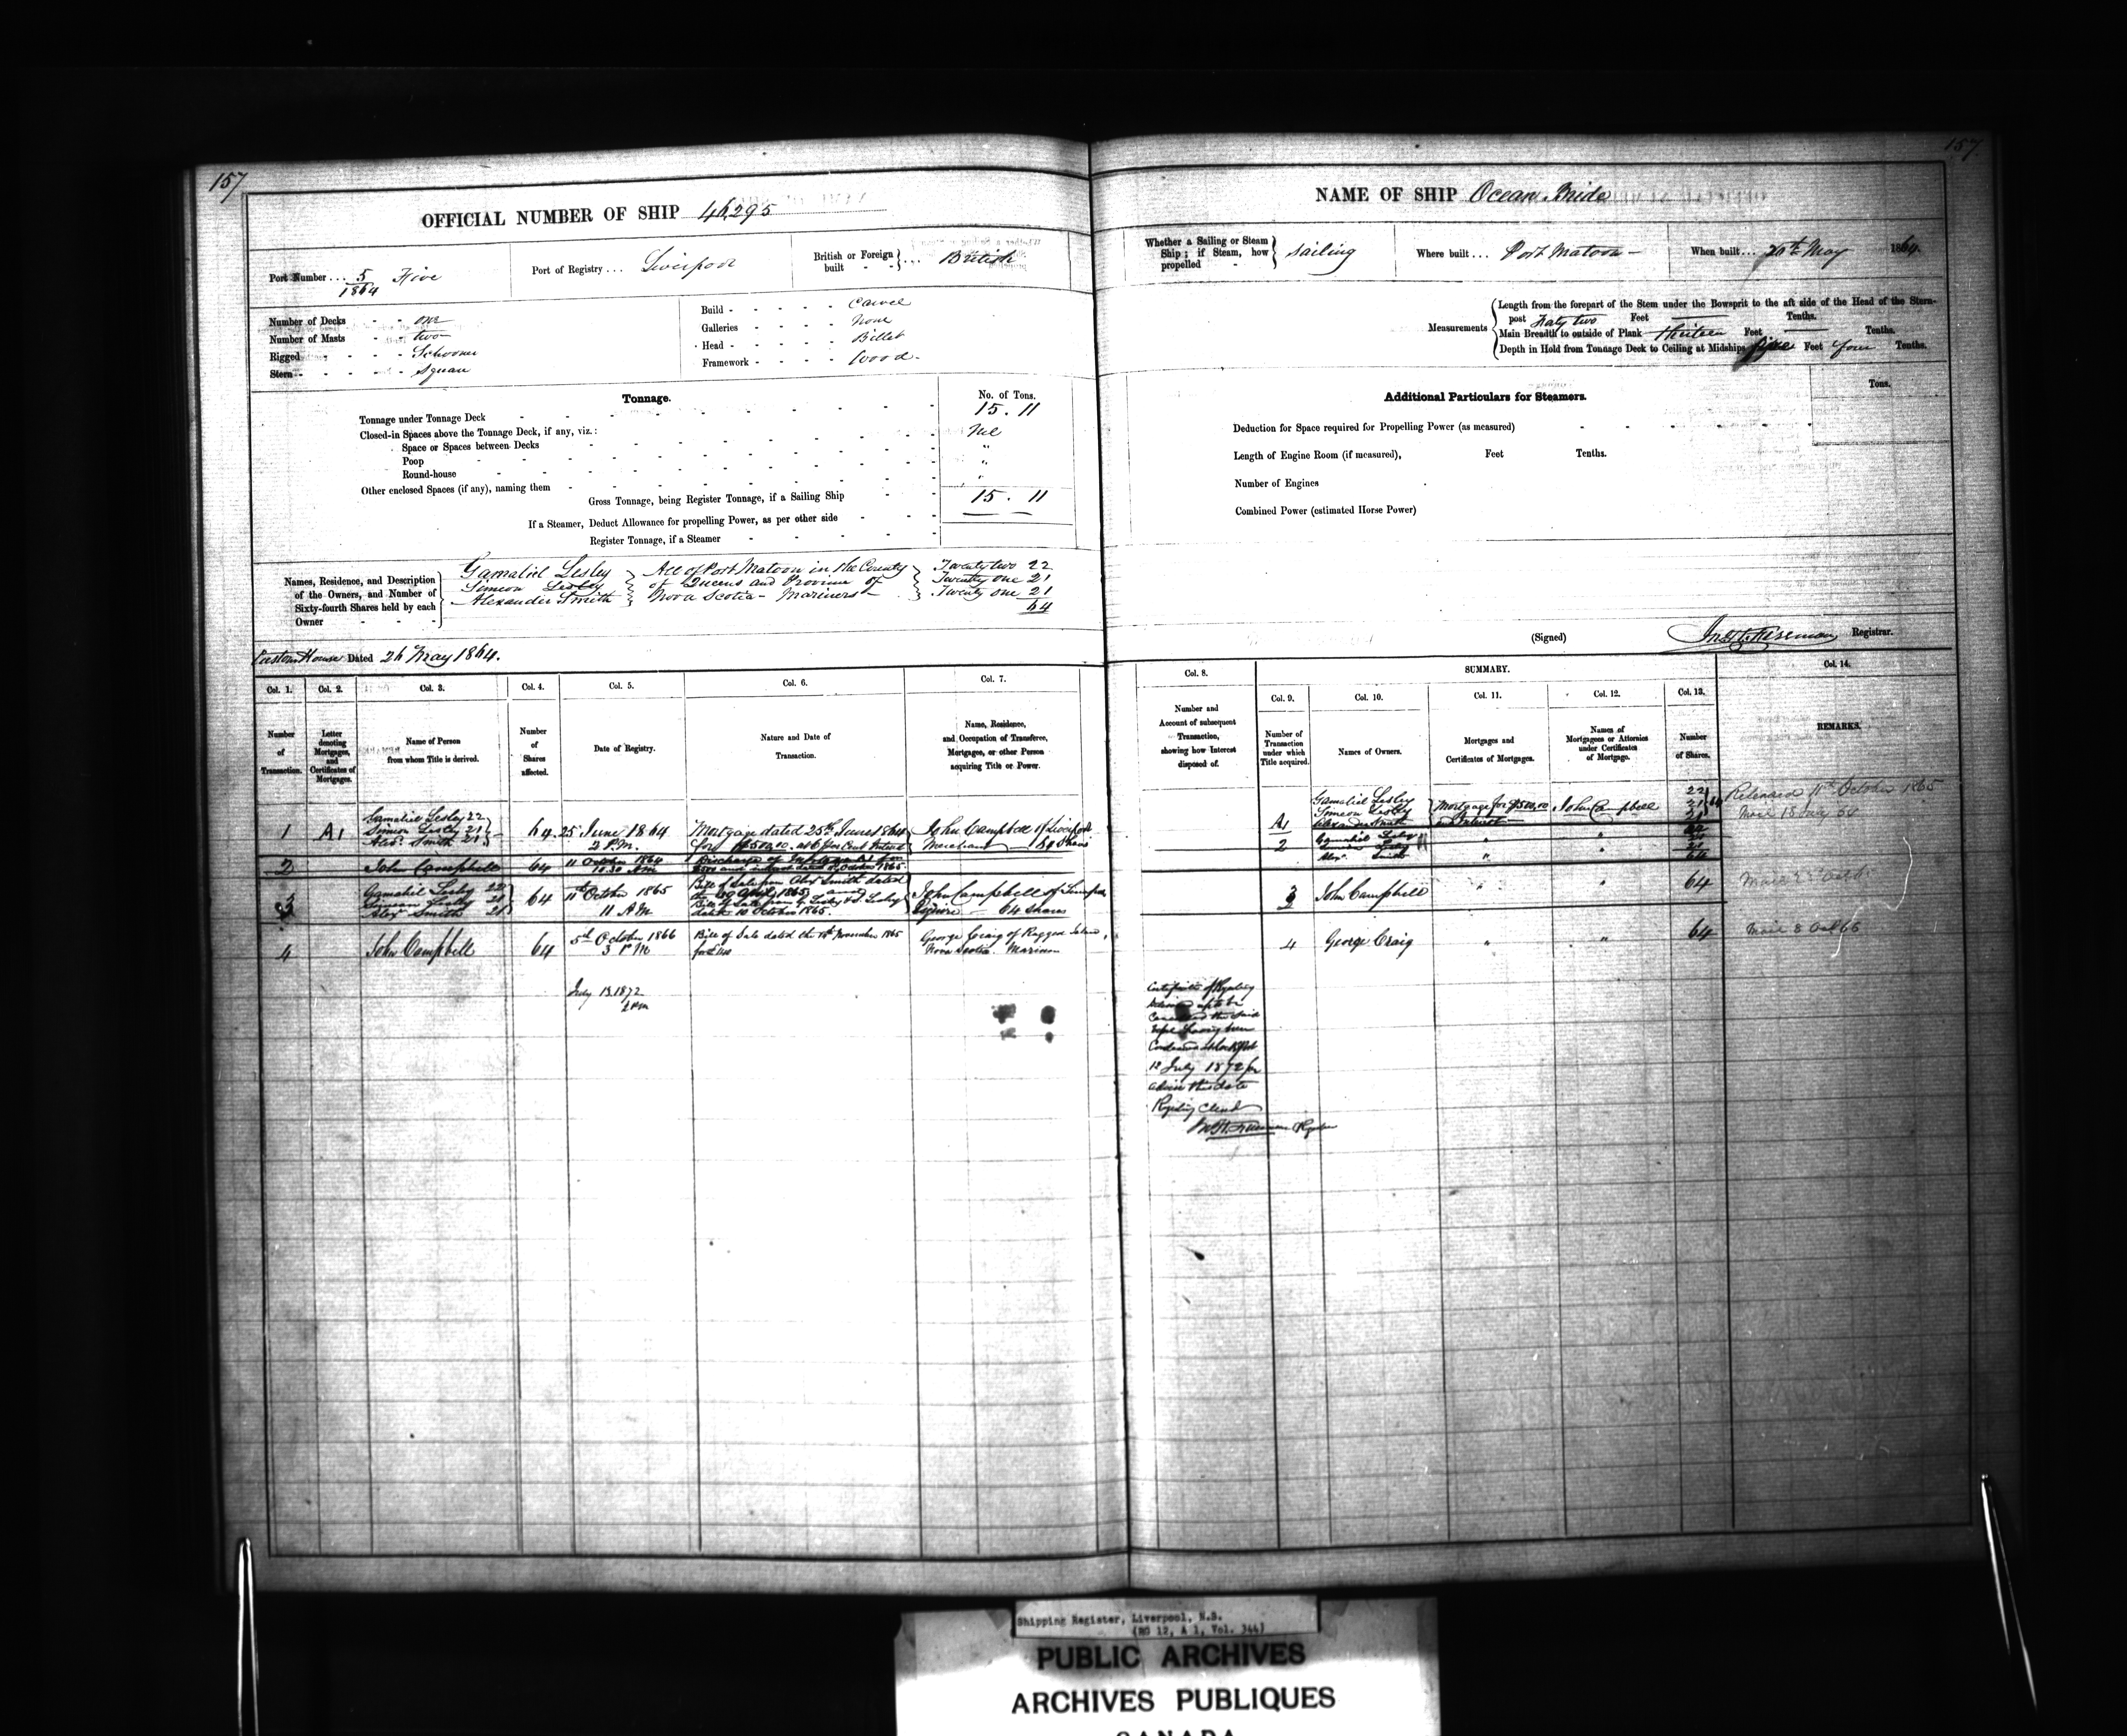 157
OFFICIAL NUMBER OF SHIP 46,295
Port Number ... 5/1864 Five
Port of Registry ... Liverpool
British or Foreign built - - } ... British
Number of Decks - - one
Number of Masts - - two
Rigged - - - - Schooner
Stern - - - - Square
Build - - - - - Carvel
Galleries - - - - None
Head - - - - - Billet
Framework - - - - Wood
Tonnage.
No. of Tons.
Tonnage under Tonnage Deck 15.11
Closed-in Spaces above the Tonnage Deck, if any, viz.: Nil
Space or Spaces between Decks "
Poop "
Round-house "
Other enclosed Spaces (if any), naming them
Gross Tonnage, being Register Tonnage, if a Sailing Ship 15.11
If a Steamer, Deduct Allowance for propelling Power, as per other side
Register Tonnage, if a Steamer
Names, Residence, and Description of the Owners, and Number of Sixty-fourth Shares held by each Owner
Gamaliel Lesley } All of Port Matoon in the County } Twenty two 22
Simeon Lesley } of Queens and Province of } Twenty one 21
Alexander Smith } Nova Scotia - Mariners - } Twenty one 21
64
Custom House Dated 26 May 1864.
Col. 1. Col. 2. Col. 3. Col. 4. Col. 5. Col. 6. Col. 7.
Number of Transaction.
Letter denoting Mortgages, and Certificates of Mortgages.
Name of Person from whom Title is derived.
Number of Shares affected.
Date of Registry.
Nature and Date of Transaction.
Name, Residence, and Occupation of Transferee, Mortgagee, or other Person acquiring Title or Power.
1 A1 Gamaliel Lesley 22
Simeon Lesley 21
Alexr. Smith 21
64 25 June 1864
2 P.M.
Mortgage dated 25th June 1864
for $500.00 at 6 per Cent Interest
John Campbell of Liverpool
Merchant
2 John Campbell 64 11 October 1864
10.30 AM
Discharge of Mortgage A1 for
3 Gamaliel Lesley 22
Simeon Lesley 21
Alexr Smith 21
64 11th October 1865
11 A.M.
Bill of Sale from Alexr Smith dated
the 20 April 1865 and
Bill of Sale from G. Lesley & S. Lesley
dated 10 October 1865.
John Campbell of Liverpool
64 shares
4 John Campbell 64 5th October 1866
3 PM
Bill of Sale dated the November 1865
George Craig of Ragged Island,
Nova Scotia. Mariner
July 13.1872
2 PM
157
NAME OF SHIP Ocean Bride
Whether a Sailing or Steam Ship; if Steam, how propelled - } Sailing
Where built ... Port Matoon -
When built ... 20th May 1864.
Measurements
Length from the forepart of the Stem under the Bowsprit to the aft side of the Head of the Stern-
post Forty two Feet Tenths.
Main Breadth to outside of Plank thirteen Feet Tenths.
Depth in Hold from Tonnage Deck to Ceiling at Midships five Feet four Tenths.
Additional Particulars for Steamers.
Tons.
Deduction for Space required for Propelling Power (as measured)
Length of Engine Room (if measured), Feet Tenths.
Number of Engines
Combined Power (estimated Horse Power)
(Signed) Registrar.
Col. 8. SUMMARY. Col. 14.
Col. 9. Col. 10. Col. 11. Col. 12. Col. 13.
Number and Account of subsequent Transaction, showing how Interest disposed of.
Number of Transaction under which Title acquired.
Names of Owners.
Mortgages and Certificates of Mortgages.
Names of Mortgagees or Attornies under Certificates of Mortgage.
Number of Shares.
REMARKS.
A1 Gamaliel Lesley
Simeon Lesley
Alexander Smith
Mortgage for $500.00
and Interest
John Campbell
22
21
21
64
Released 11th October 1865
2 Gamaliel Lesley
Simeon Lesley
Alexr Smith
" "
22
21
21
64
3 John Campbell " " 64
4 George Craig " " 64
Certificate of Registry
12 July 1872 per
advice this date
Registry Closed
Shipping Register, Liverpool, N.S.
(RG 12, A 1, Vol. 344)
PUBLIC ARCHIVES
ARCHIVES PUBLIQUES
CANADA